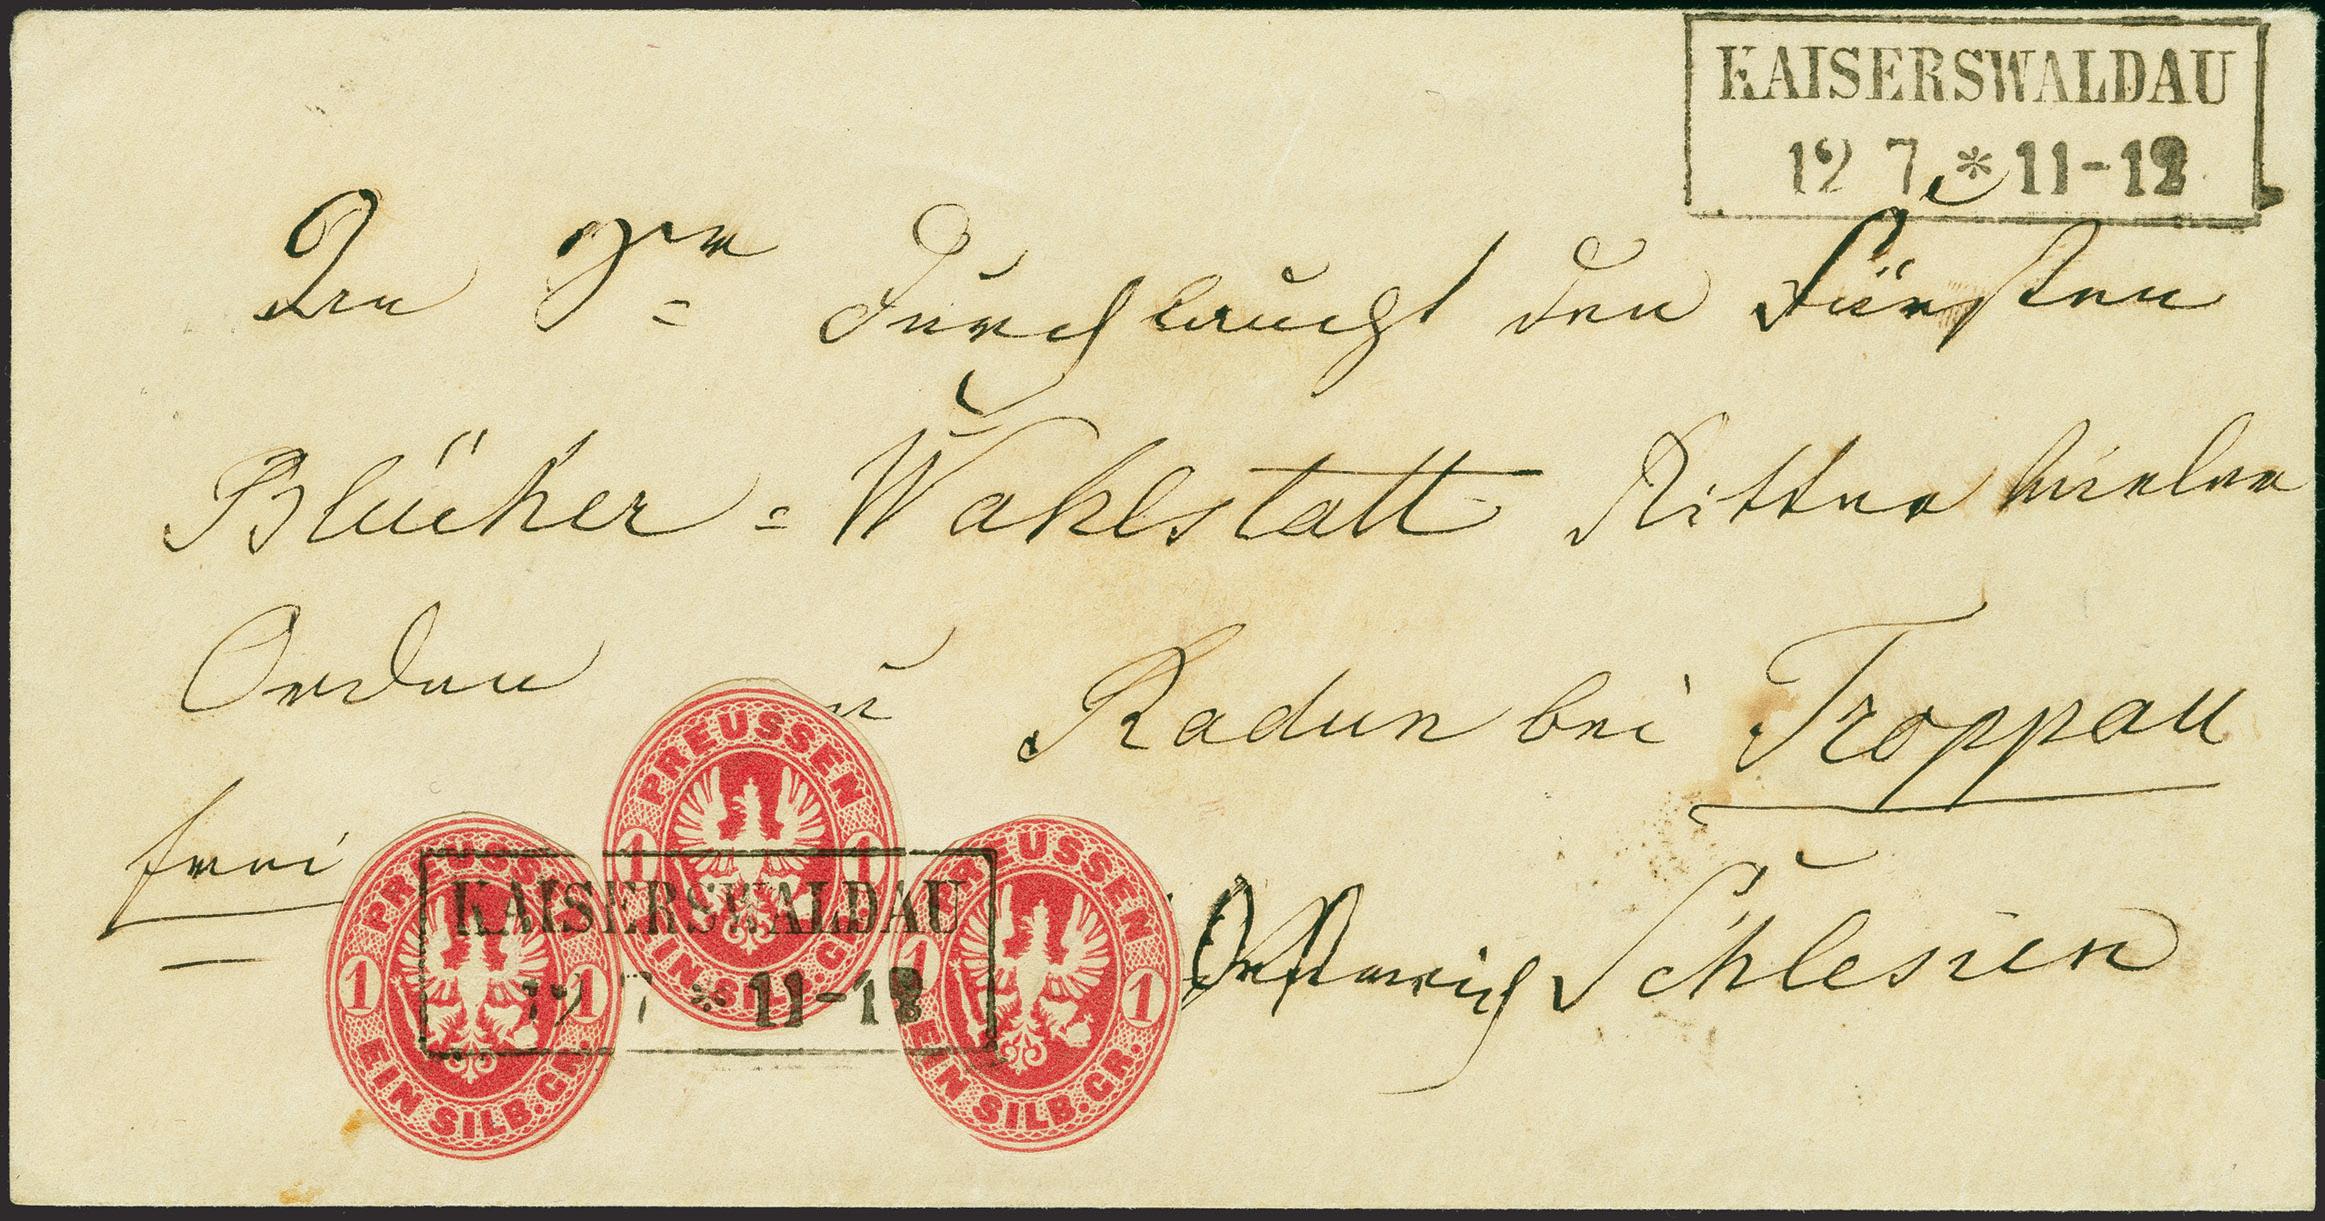 KAISERSWALDAU
12 7 * 11-12
Durchlaucht den Fürsten
Blücher = Wahlstatt Ritter hierher
Orden zu Radun bei Troppau
frei
Oestereich Schlesien
PREUSSEN
1 1
EIN SILB. GR.
PREUSSEN
1 1
EIN SILB. GR.
PREUSSEN
1 1
EIN SILB. GR.
KAISERSWALDAU
12 7 * 11-12